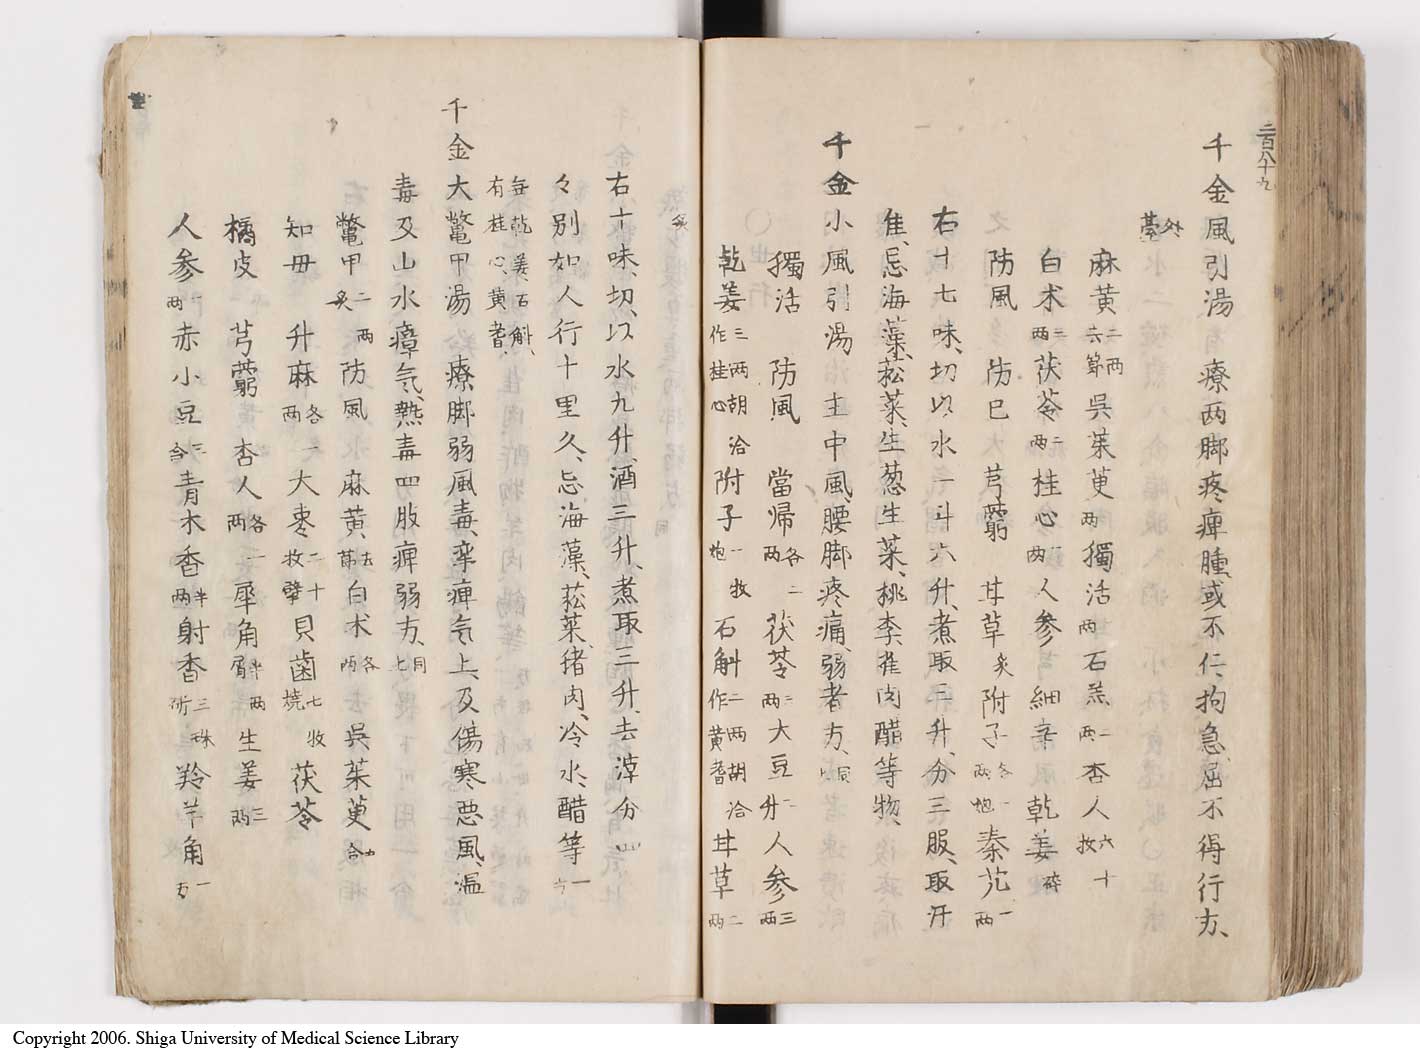 二百八十九
千金風引湯 療両脚疼痺腫、或不仁、拘急、屈不得行方、
外臺
麻黄二両六節 呉茱萸両 獨活両 石羔二両 杏人六十枚
白朮三両 茯苓二両 桂心一両 人参 細辛 乾姜碎
防風 防巳 芎藭 甘草炙 附子各一両炮 秦艽一両
右十七味、切以水一斗六升、煮取三升、分三服、取汗
佳、忌海藻、菘菜、生葱、生菜、桃李、雀肉、醋等物、
千金小風引湯 主中風、腰脚疼痛、弱者方、同
獨活 防風 當帰各二両 茯苓三両 大豆二升 人参三両
乾姜三両胡洽作桂心 附子一枚炮 石斛二両胡洽作黄耆 甘草二両
炙
右十味、切、以水九升、酒三升、煮取三升、去滓分四
々別如人行十里久、忌海藻、菘菜、猪肉、冷水、醋等一方
無乾姜石斛、有桂心、黄耆、
千金大鼈甲湯 療脚弱風毒、孿痺気上、及傷寒悪風、温
毒及山水瘴気、熱毒四肢痺弱方、同七
鼈甲二両炙 防風 麻黄去節 白朮各両 呉茱萸五合
知母 升麻各両 大棗二十枚擘 貝歯七枚燒 茯苓
橘皮 芎藭 杏人各一両 犀角半両屑 生姜三両
人参一両 赤小豆三合 青木香半両 射香三銖研 羚羊角一方
Copyright 2006. Shiga University of Medical Science Library